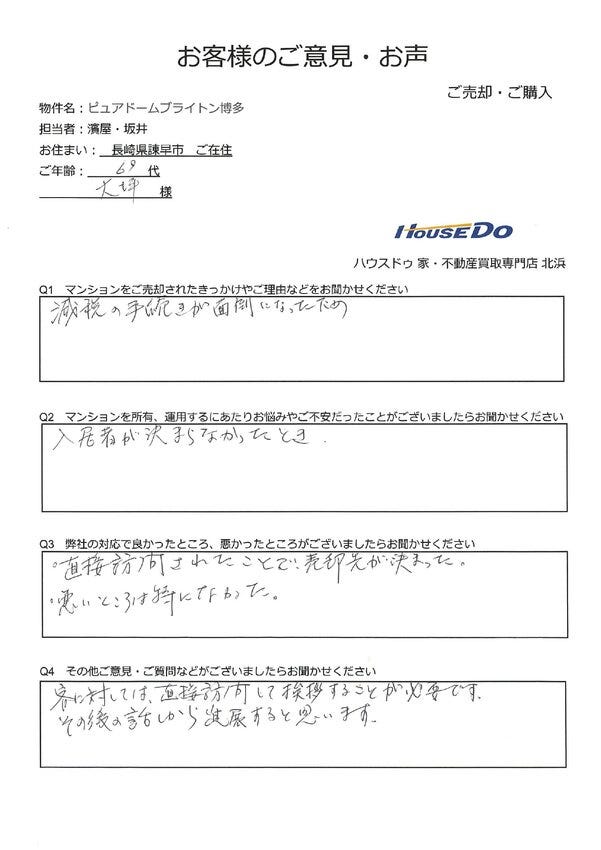 お客様のご意見・お声
ご売却・ご購入
物件名：ピュアドームブライトン博多
担当者：濱屋・坂井
お住まい： 長崎県諫早市 ご在住
ご年齢： 69 代
大坪 様
HOUSEDO
ハウスドゥ 家・不動産買取専門店 北浜
Q1 マンションをご売却されたきっかけやご理由などをお聞かせください
減税の手続きが面倒になったため
Q2 マンションを所有、運用するにあたりお悩みやご不安だったことがございましたらお聞かせください
入居者が決まらなかったとき.
Q3 弊社の対応で良かったところ、悪かったところがございましたらお聞かせください
・直接訪問されたことで、売却先が決まった。
・悪いところは特になかった。
Q4 その他ご意見・ご質問などがございましたらお聞かせください
客に対しては、直接訪問して挨拶することが必要です.
その後の話しから進展すると思います.